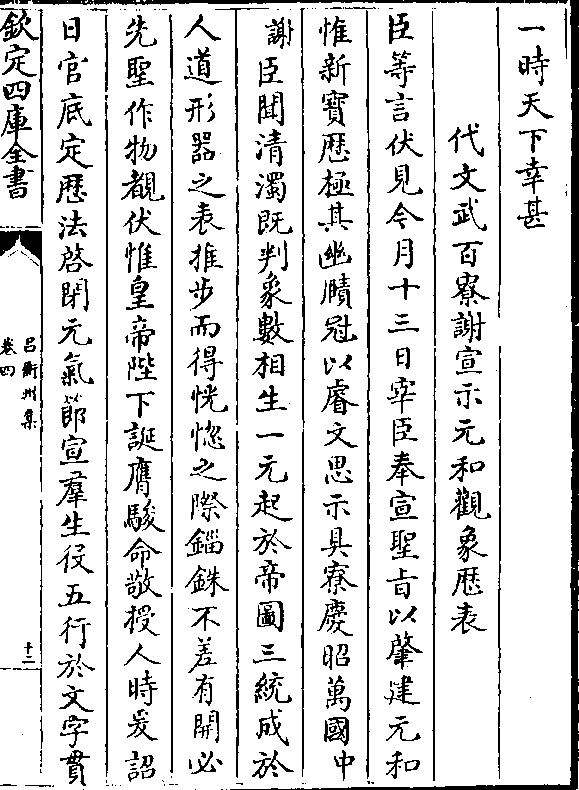 一時天下幸甚
代文武百寮謝宣示元和觀象厯表
臣等言伏見今月十三日宰臣奉宣聖㫖以肇建元和
惟新寶厯極其幽賾冠以睿文思示具寮慶昭萬國中
謝臣聞清濁既判象數相生一元起於帝圖三統成於
人道形器之表推步而得恍惚之際錙銖不差有開必
先聖作物覩伏惟皇帝陛下誕膺駿命敬授人時爰詔
日官底定厯法啓閉元氣節宣羣生役五行於文字貫
欽定四庫全書
吕衡州集
卷四
十二